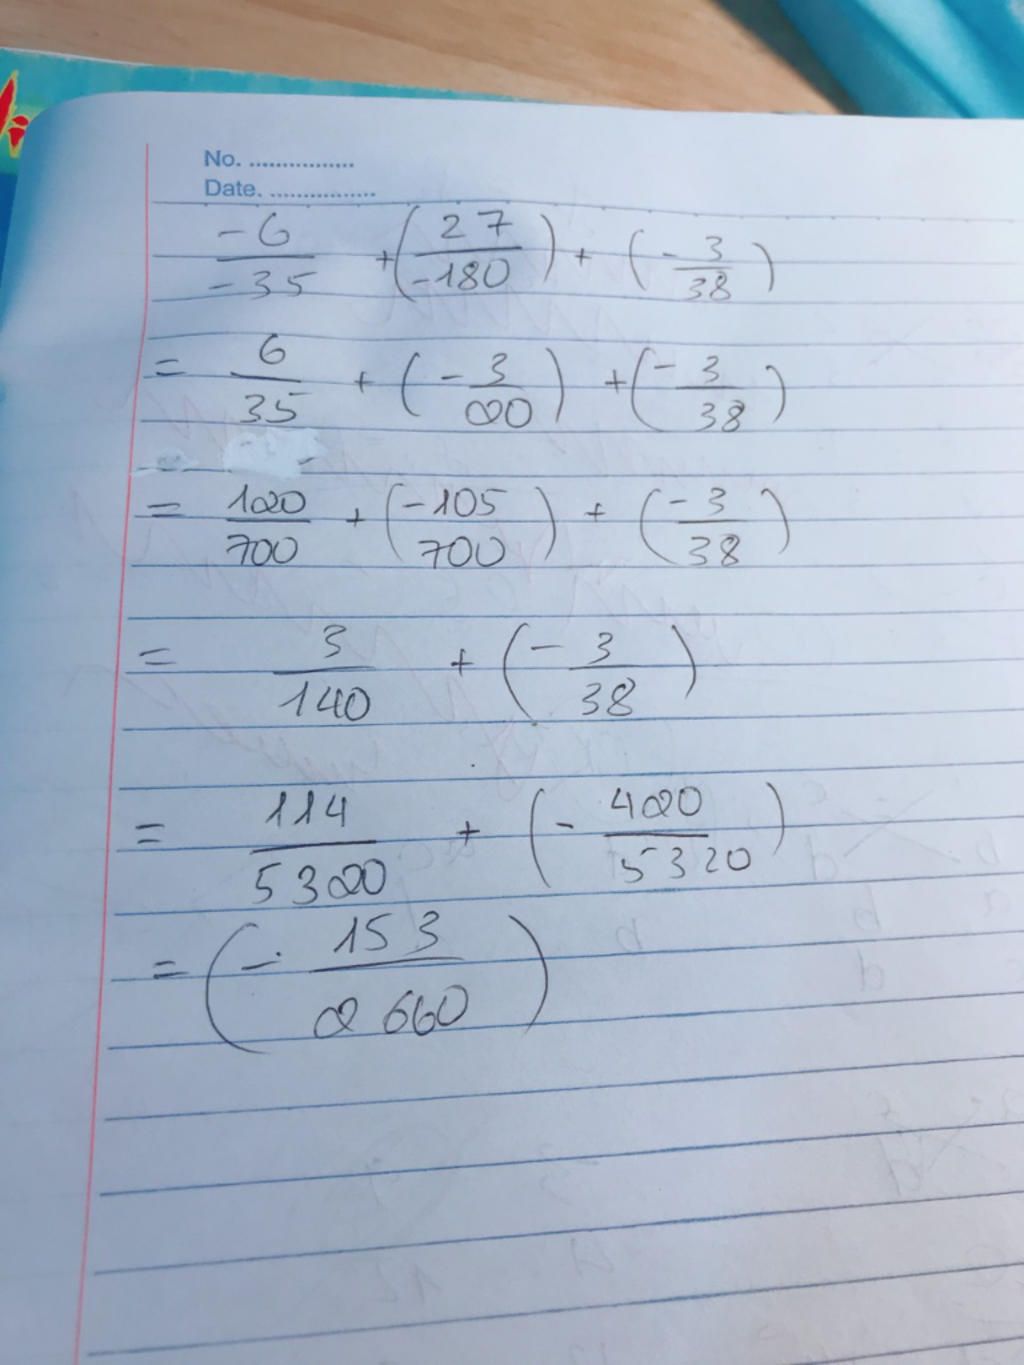 No. ................
Date. ................
-6/-35 + (27/-180) + (-3/38)
= 6/35 + (-3/20) + (-3/38)
= 120/700 + (-105/700) + (-3/38)
= 3/140 + (-3/38)
= 114/5320 + (-420/5320)
= (-153/2660)